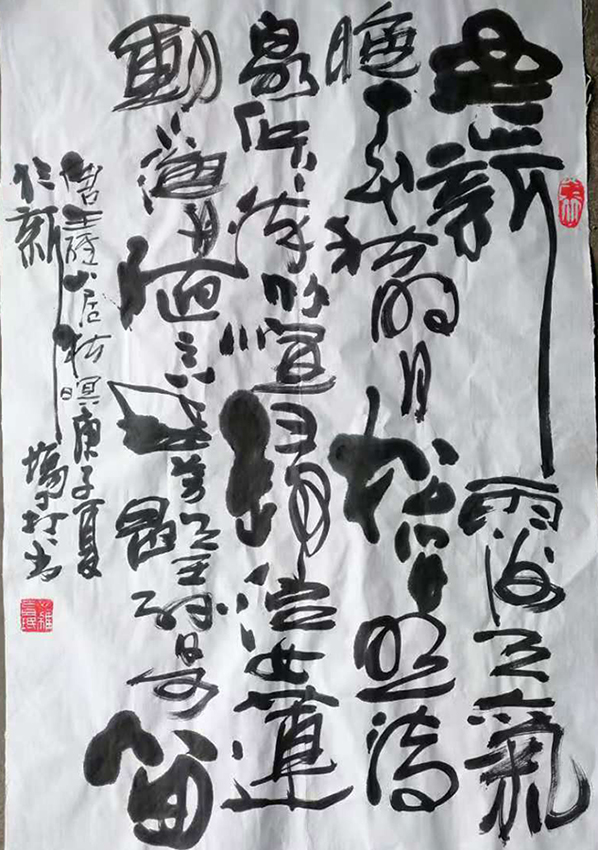 空山新雨後天氣
晚來秋明月松間照清
泉石上流竹喧歸浣女蓮
動下漁舟隨意春芳歇王孫自可留
王維山居秋暝庚子夏
於新